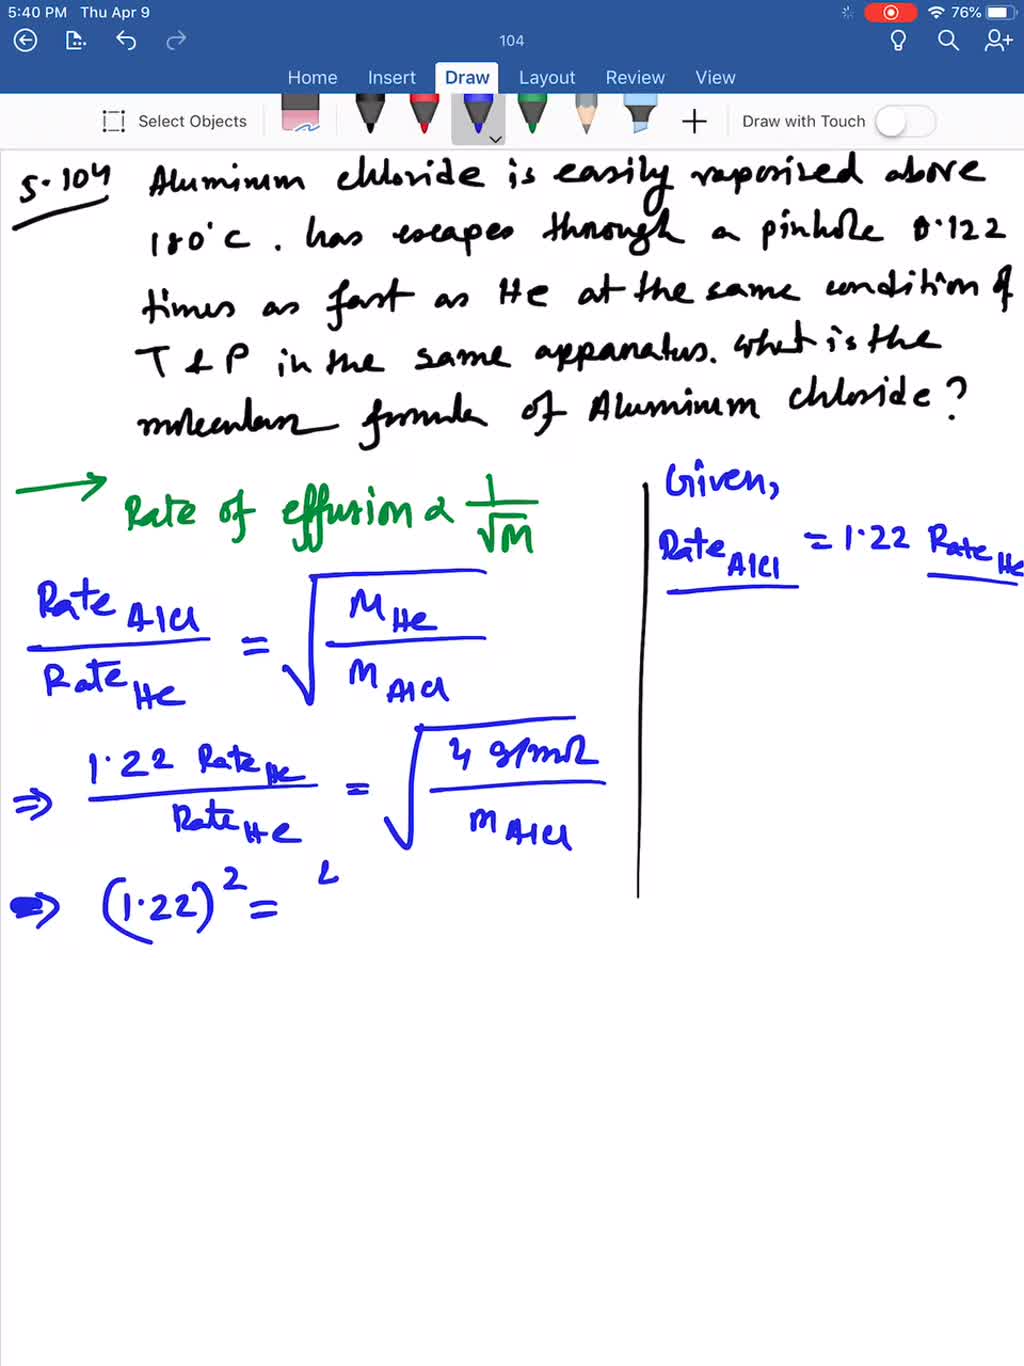 5:40 PM Thu Apr 9
76%
104
Home Insert Draw Layout Review View
Select Objects
Draw with Touch
5.104 Aluminum chloride is easily vaporized above
180°C. has escapes through a pinhole 0.122
times as fast as He at the same condition of
T & P in the same apparatus. What is the
molecular formula of Aluminum chloride?
Rate of effusion α 1/√M
Rate AlCl / Rate He = √(M He / M AlCl)
⇒ 1.22 Rate He / Rate He = √(4 g/mol / M AlCl)
⇒ (1.22)² =
Given,
Rate AlCl = 1.22 Rate He